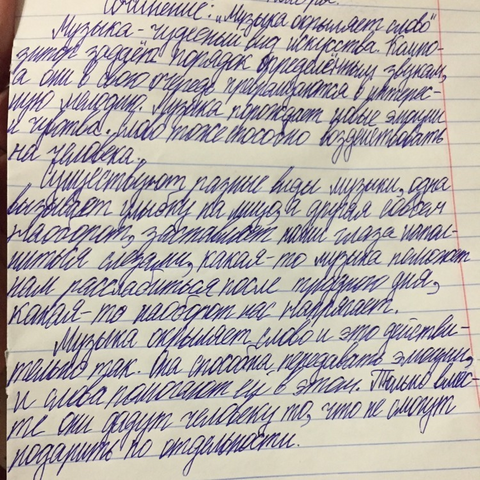 Сочинение: „Музыка окрыляет слово"
Музыка - чудесный вид искусства. Компо-
зитор задаёт порядок определённым звукам,
а они в свою очередь превращаются в интерес-
ную мелодию. Музыка порождает новые эмоции
и чувства. Слово тоже способно воздействовать
на человека.
Существуют разные виды музыки, одна
вызывает улыбку на лице, а другая
наоборот, заставляет наши глаза напол-
ниться слезами, какая-то музыка поможет
нам расслабиться после трудного дня,
какая-то наоборот нас напрягает.
Музыка окрыляет слово и это действи-
тельно так. Она способна передавать эмоции,
и слова помогают ей в этом. Только вмес-
те они дадут человеку то, что не смогут
подарить по отдельности.